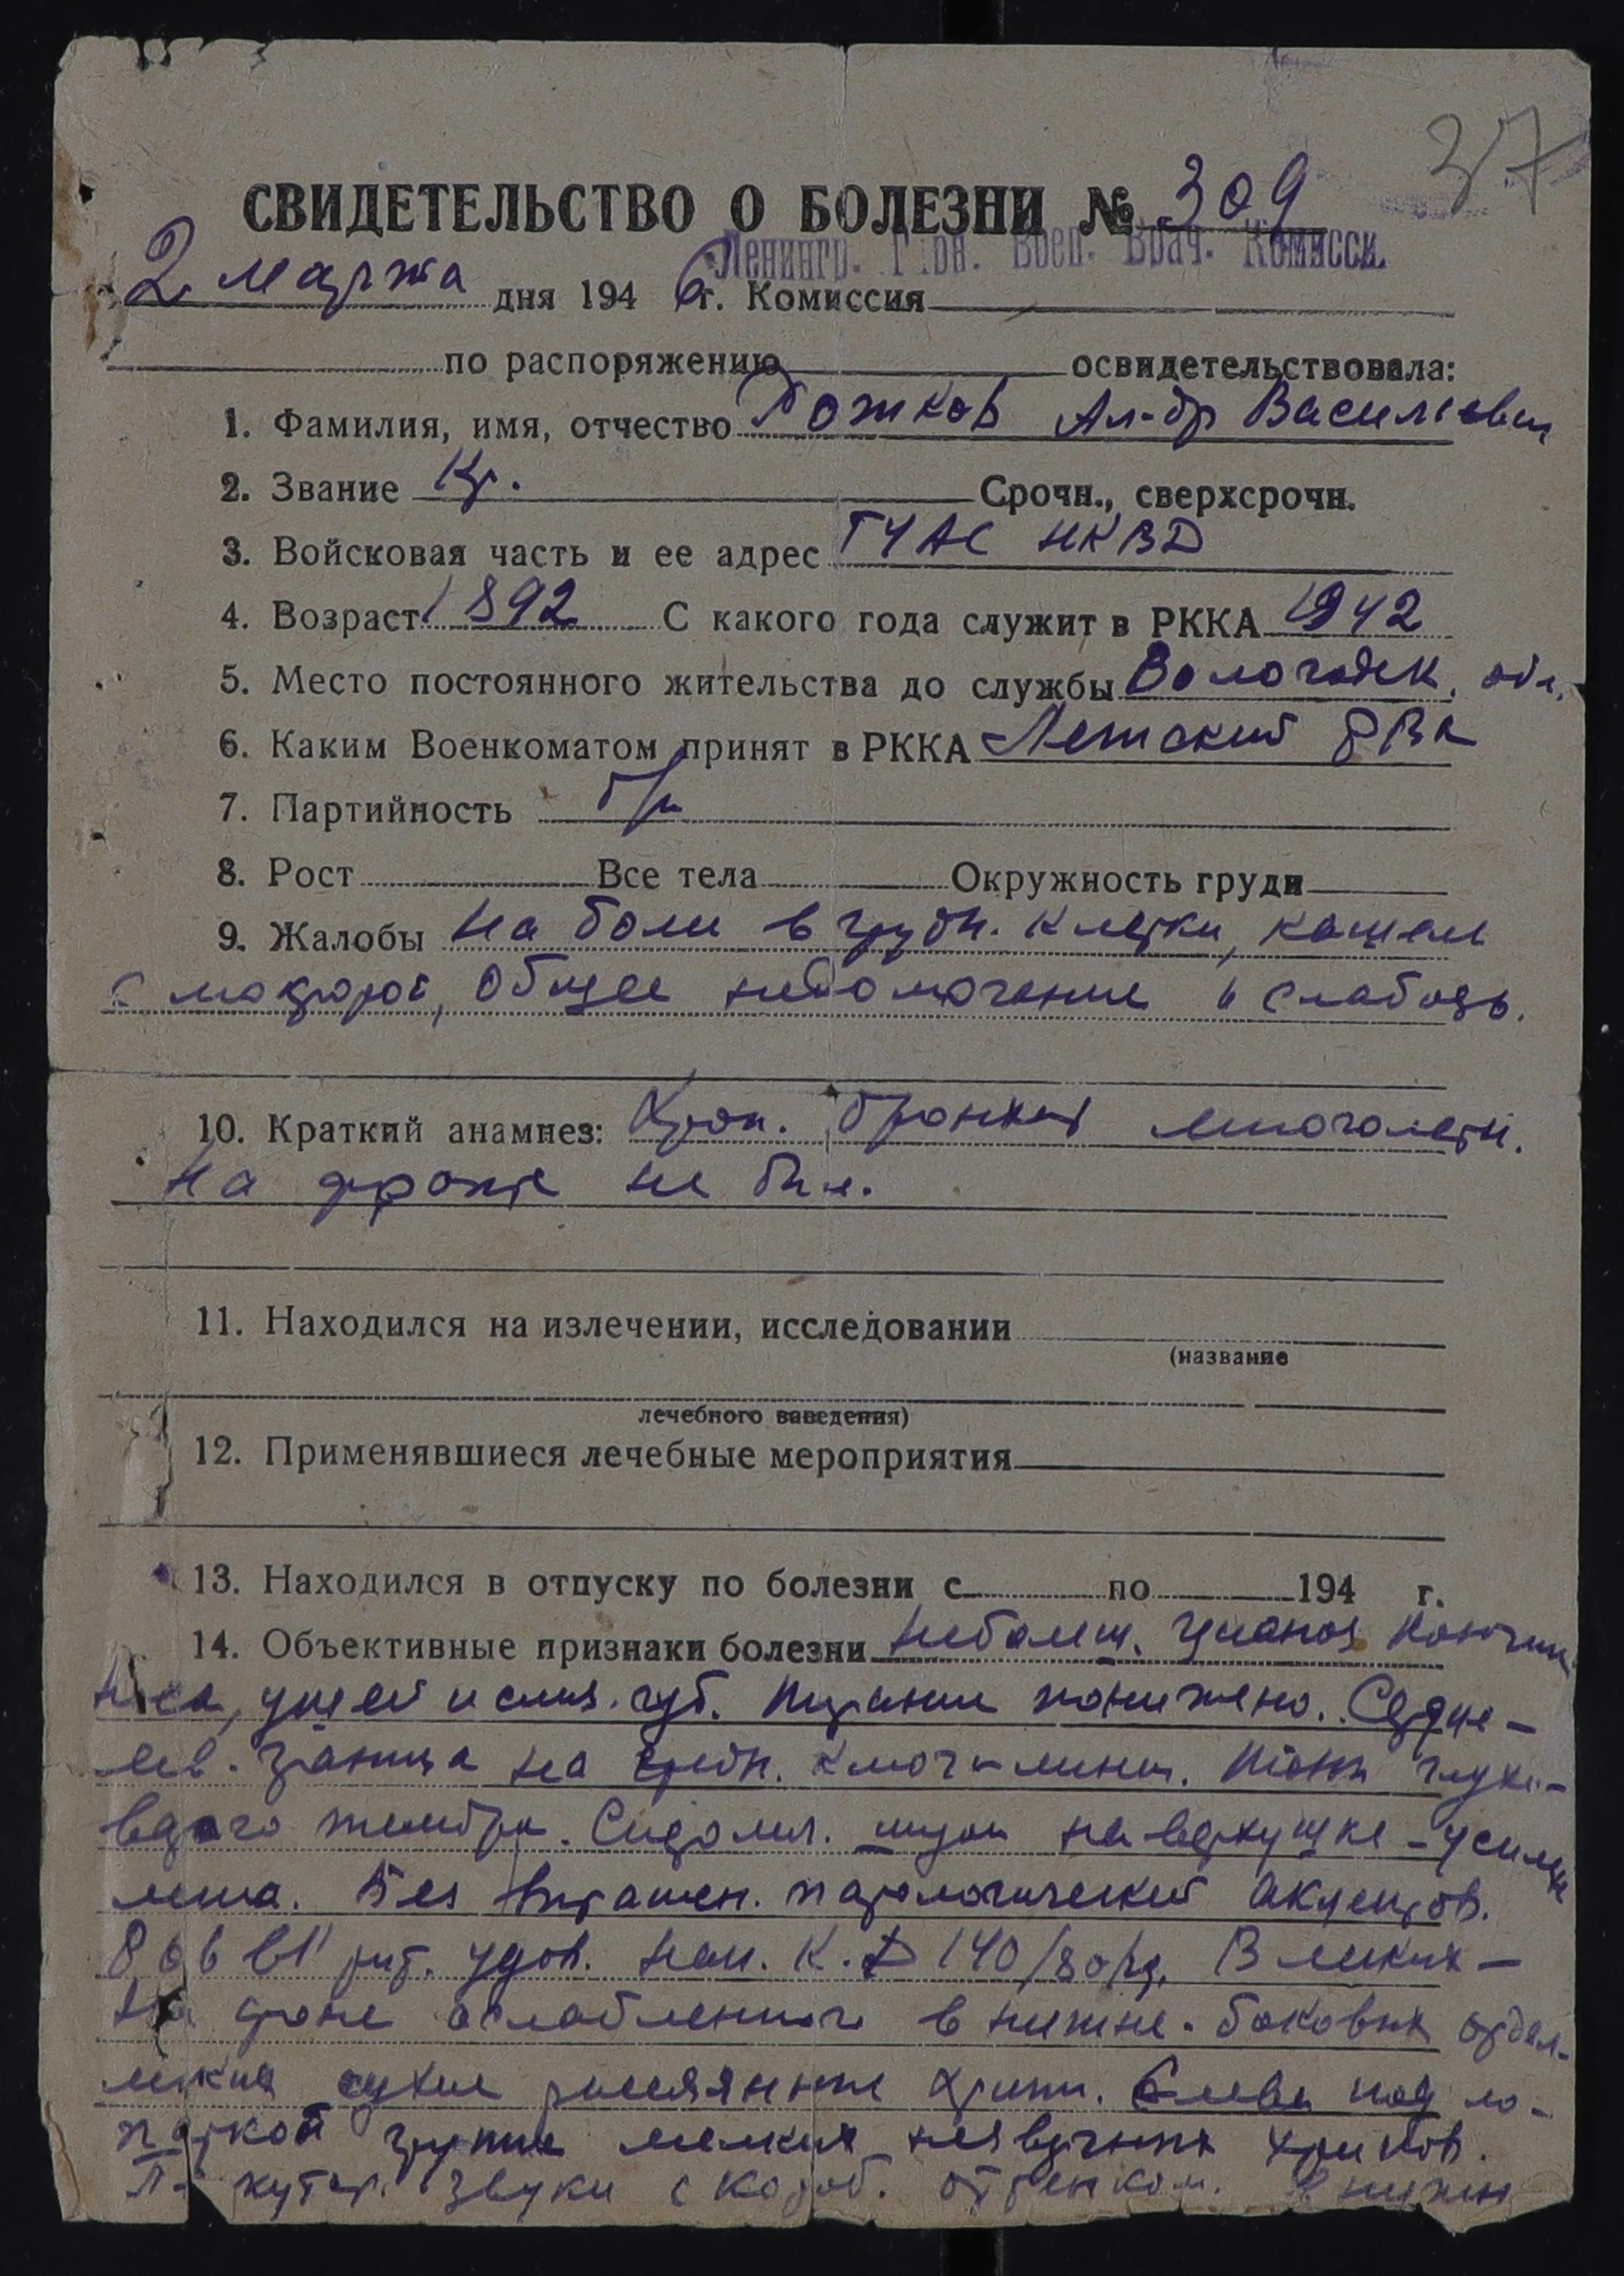 37
СВИДЕТЕЛЬСТВО О БОЛЕЗНИ № 309
Ленингр. Гарн. Воен. Врач. Комисси.
2 марта дня 1946 г. Комиссия
по распоряжению освидетельствовала:
1. Фамилия, имя, отчество Рожков Ал-др Васильевич
2. Звание Кр. Срочн., сверхсрочн.
3. Войсковая часть и ее адрес ГУАС НКВД
4. Возраст 1892 С какого года служит в РККА 1942
5. Место постоянного жительства до службы Вологодск. обл.
6. Каким Военкоматом принят в РККА РВК
7. Партийность б/п
8. Рост Все тела Окружность груди
9. Жалобы на боли в грудн. клетки, кашель
с мокротой, общее недомогание и слабость.
10. Краткий анамнез: Хрон. бронхит многолетн.
На фронте не был.
11. Находился на излечении, исследовании
(название
лечебного заведения)
12. Применявшиеся лечебные мероприятия
13. Находился в отпуску по болезни с по 194 г.
14. Объективные признаки болезни Небольш. цианоз кончик
носа, ушей и слиз. губ. Питание понижено. Сердце –
лев. граница на средн. ключ-линии. Тоны глухо-
ватого тембра. Систолич. шум на верхушке – усилен
Без выражен. патологический акцентов.
удов. нап. К.Д 140/80 В легких –
на фоне ослабленного в нижне-боковых отдел.
мелкие сухие рассеянные хрипы. Слева под ло-
паткой группа мелких незвучных хрипов.
звуки с короб. оттенком. В нижн